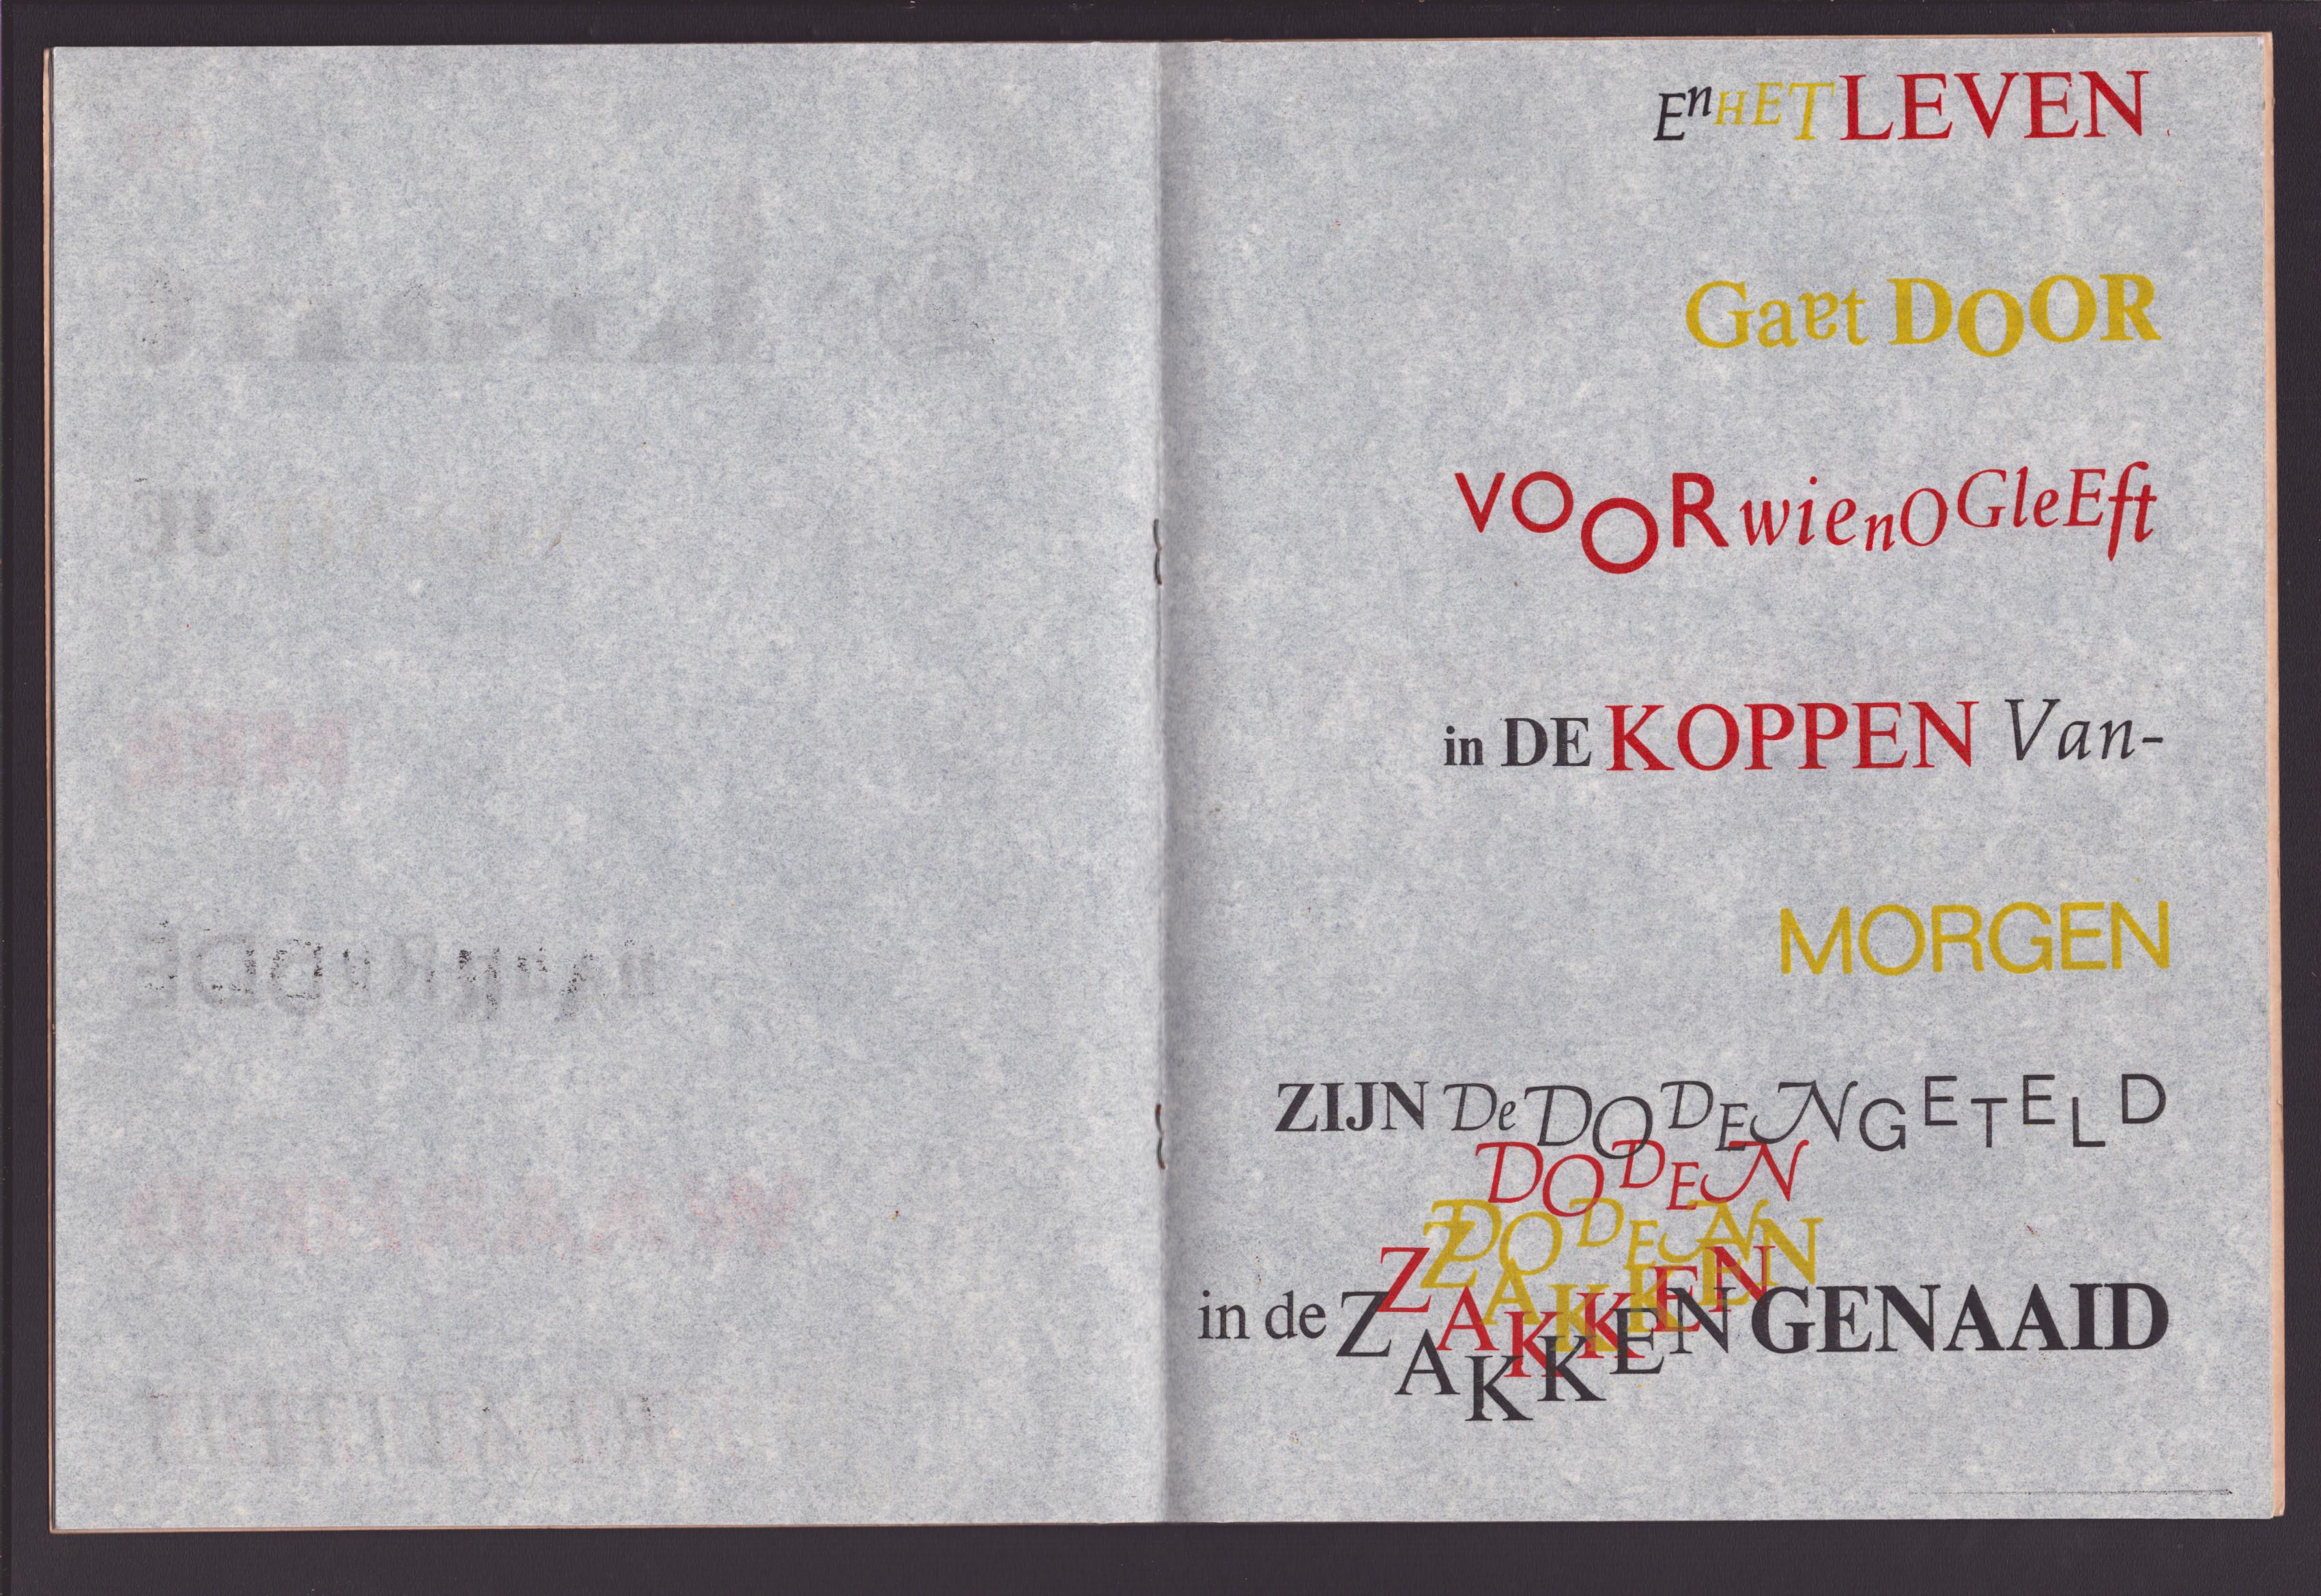 En HET LEVEN
Gaat DOOR
VOOR wie nOGleEft
in DE KOPPEN Van-
MORGEN
ZIJN De DODEN GETELD
DODEN
DODEN
ZAKKEN
ZAKKEN
in de ZAKKEN GENAAID